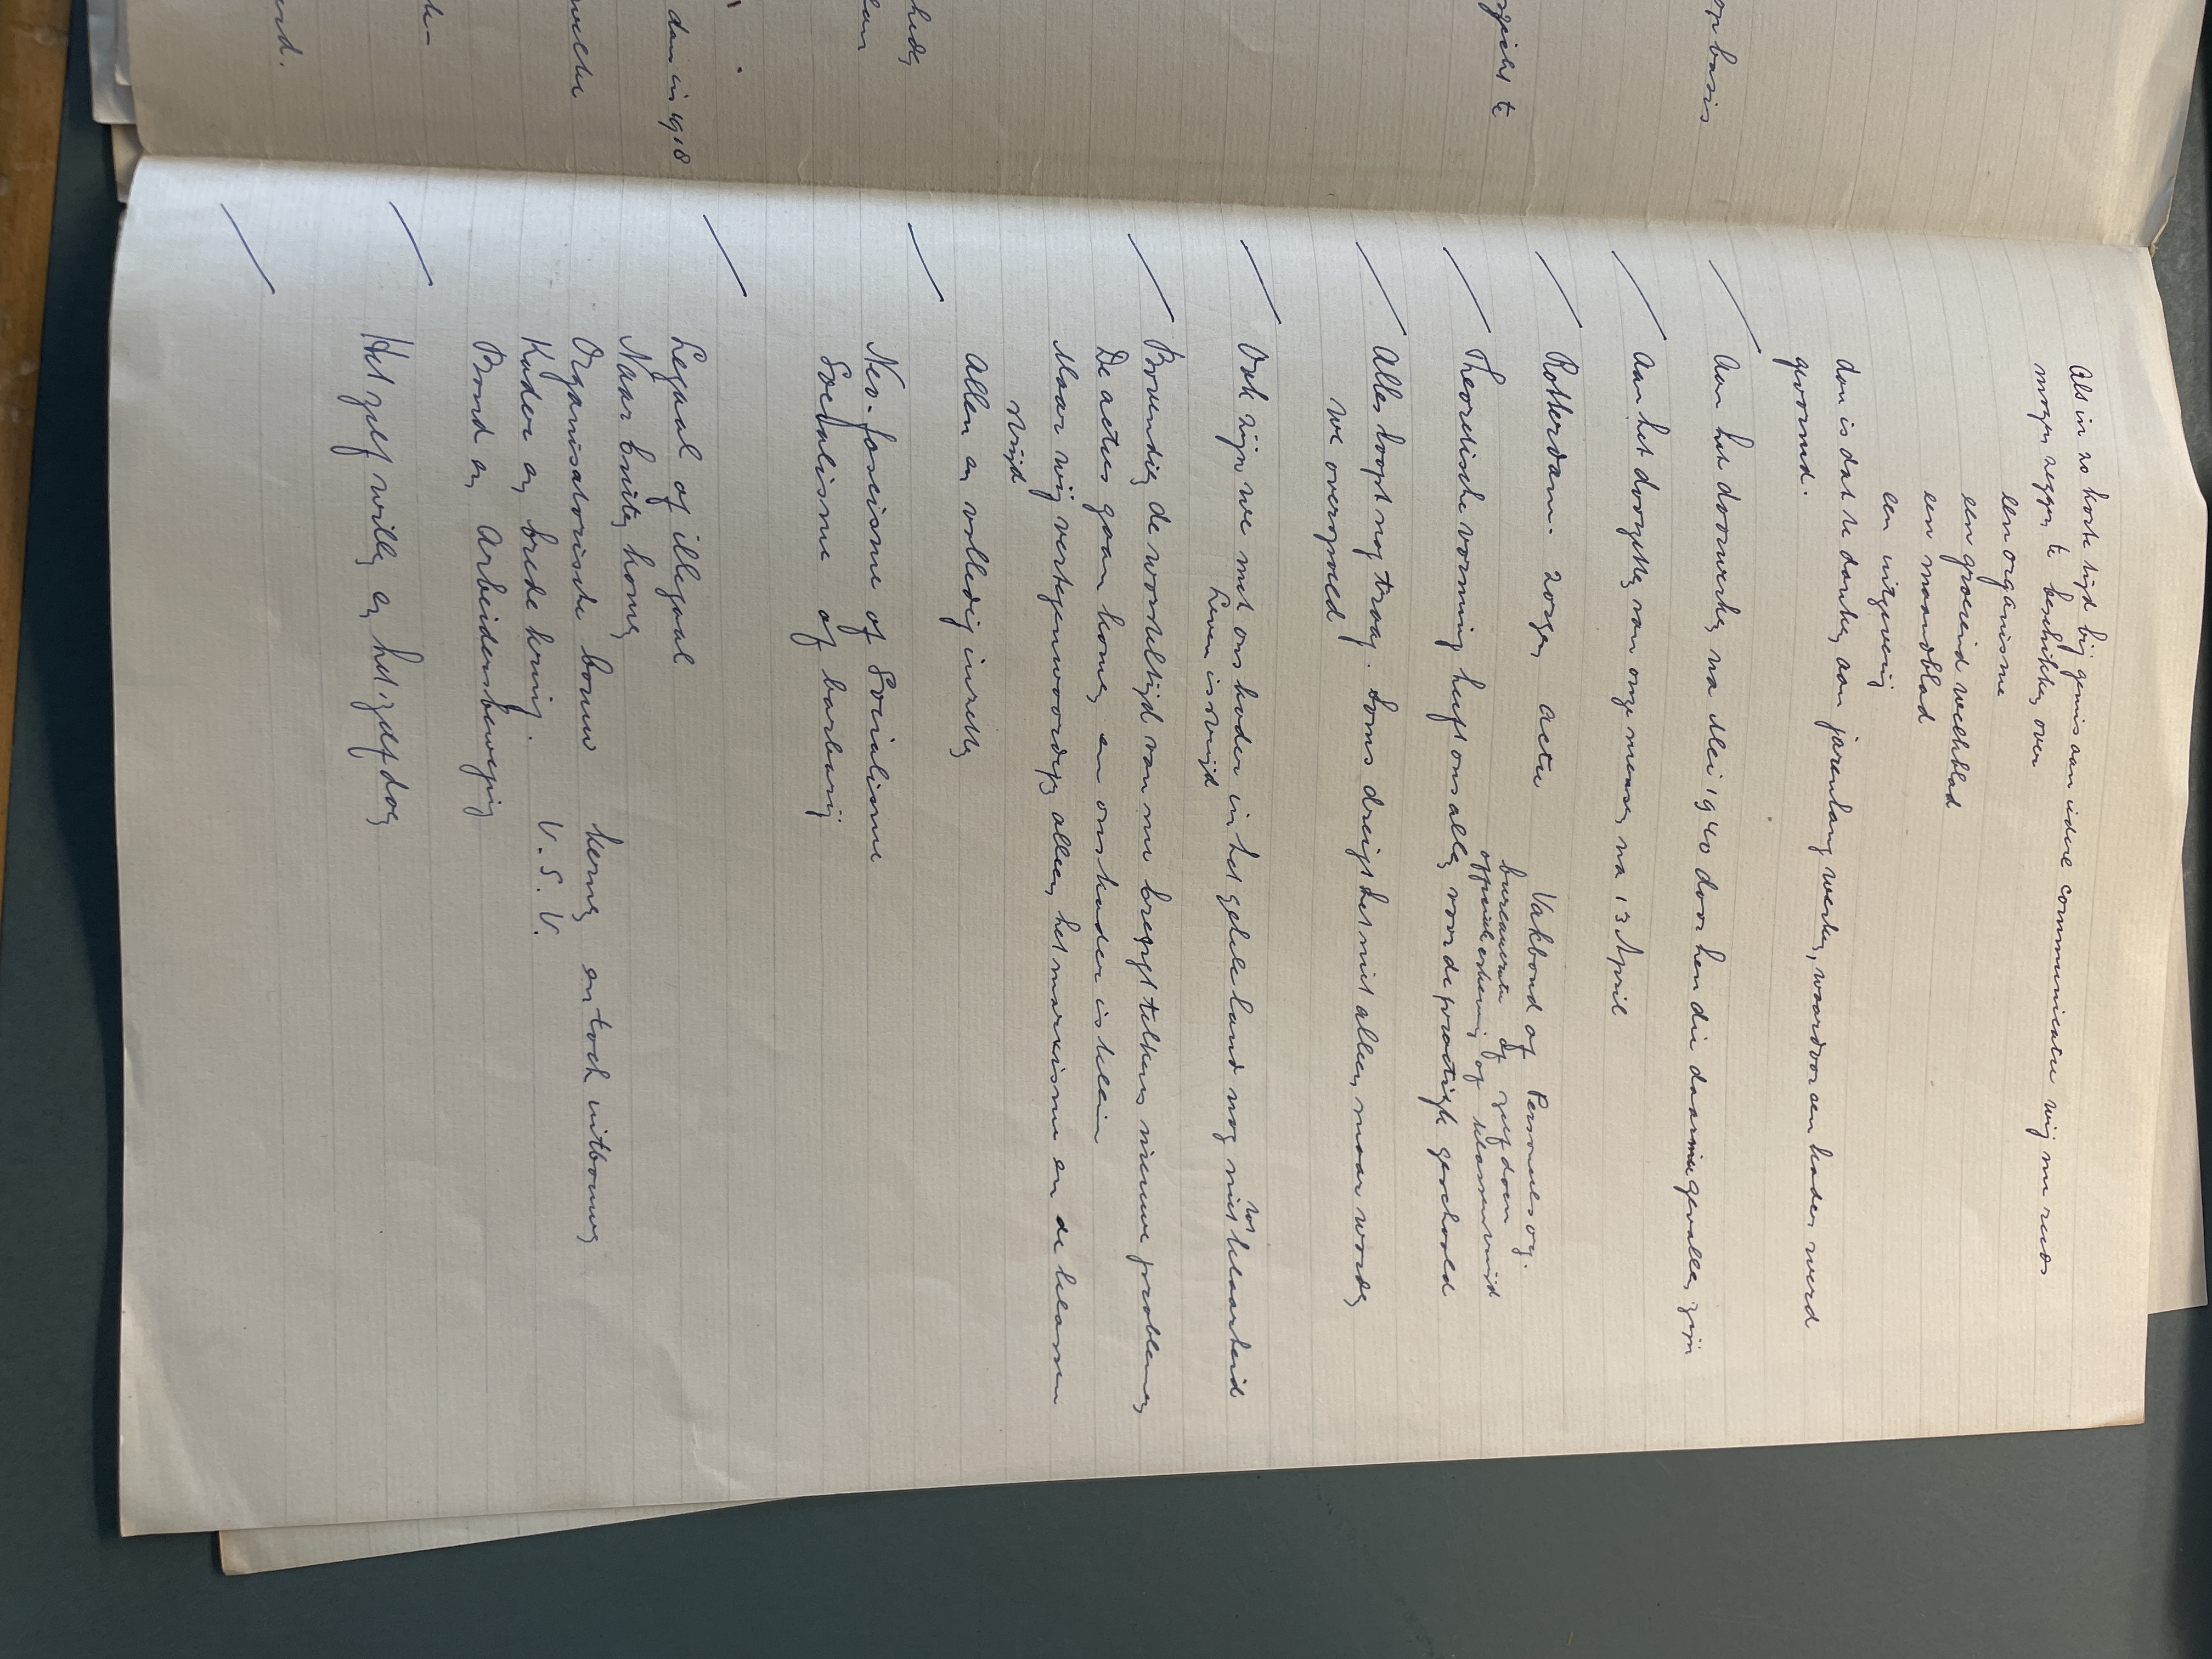 op basis
zicht te
heden
dan in 1918
welke
Als in zo korte tijd bij gemis aan iedere communicatie wij nu reeds
mogen zeggen te beschikken over
een organisme
een groeiend weekblad
een maandblad
een uitgeverij
dan is dat te danken aan jarenlang werken, waardoor een kader werd
gevormd.
/ Aan het doorwerken na Mei 1940 door hen die daarmee gevallen zijn
/ Aan het doorzetten van onze mensen na 13 April
/ Rotterdam. zorgen actie Vakbond of Personeelsorg.
bureaucratie of zelf doen
opperste erkenning of klassenstrijd
/ Theoretische vorming heeft ons allen voor de practijk geschoold
/ Alles loopt nog traag. Soms dreigt het niet alleen, maar worden
we overspoeld
/ Ook zijn we met ons kader in het gehele land nog niet tot klaarheid
Leven is strijd
/ Bovendien de worsteltijd van nu brengt telkens nieuwe problemen
De acties gaan komen en ons kader is klein
Maar wij vertegenwoordigen alleen het marxisme en de klassen
strijd
/ Allen en volledig inzetten
Neo-fascisme of Socialisme
Socialisme of barbarij
/ Legaal of illegaal
Naar buiten komen
Organisatorische bouw kernen en toch uitbouwen
Kader en brede kring. V.S.V.
Bond en Arbeidersbeweging
/ Het zelf willen en het zelf doen
/